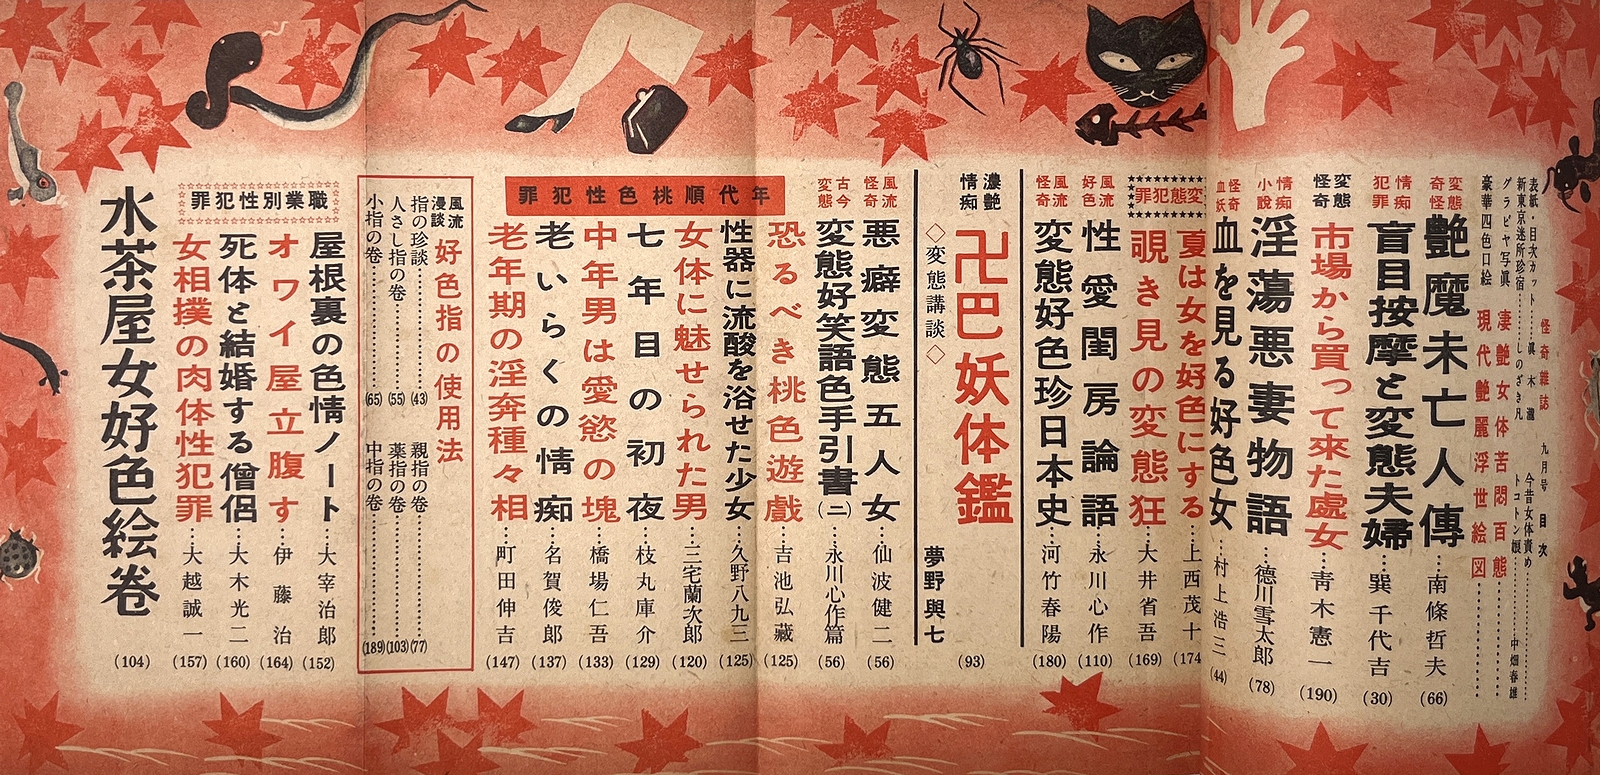 怪奇雑誌 九月号 目次
表紙・目次カット
新東京迷所珍宿……しのざき凡
グラビヤ写眞 凄艶女体苦悶百態
豪華四色口絵 現代艶麗浮世絵図
今昔女体責め
トコトン娘
中畑春雄
変態奇怪 艶魔未亡人傳…南條哲夫(66)
情痴犯罪 盲目按摩と変態夫婦…巽千代吉(30)
変態怪奇 市場から買って來た處女…青木憲一(190)
情痴小説 淫蕩悪妻物語…徳川雪太郎(78)
怪奇血妖 血を見る好色女…村上浩三(44)
変態犯罪
夏は女を好色にする…上西茂十(174
覗き見の変態狂…大井省吾(169)
風流好色 性愛閨房論語…永川心作(110)
風流怪奇 変態好色珍日本史…河竹春陽(180)
濃艶情痴
卍巴妖体鑑 夢野與七(93)
◇変態講談◇
風流怪奇 悪癖変態五人女…仙波健二(56)
古今変態 変態好笑語色手引書(二)…永川心作篇(56)
恐るべき桃色遊戯…吉池弘藏(125)
年代順桃色性犯罪
性器に流酸を浴せた少女…久野八九三(125)
女体に魅せられた男…三宅蘭次郎(120)
七年目の初夜…枝丸庫介(129)
中年男は愛慾の塊…橋場仁吾(133)
老いらくの情痴…名賀俊郎(137)
老年期の淫奔種々相…町田伸吉(147)
風流漫談 好色指の使用法
指の珍談……(43) 親指の巻……(77)
人さし指の巻……(55) 薬指の巻……(103)
小指の巻……(65) 中指の巻……(189)
職業別性犯罪
屋根裏の色情ノート…大宰治郎(152)
オワイ屋立腹す…伊藤治(164)
死体と結婚する僧侶…大木光二(160)
女相撲の肉体性犯罪…大越誠一(157)
水茶屋女好色絵巻(104)